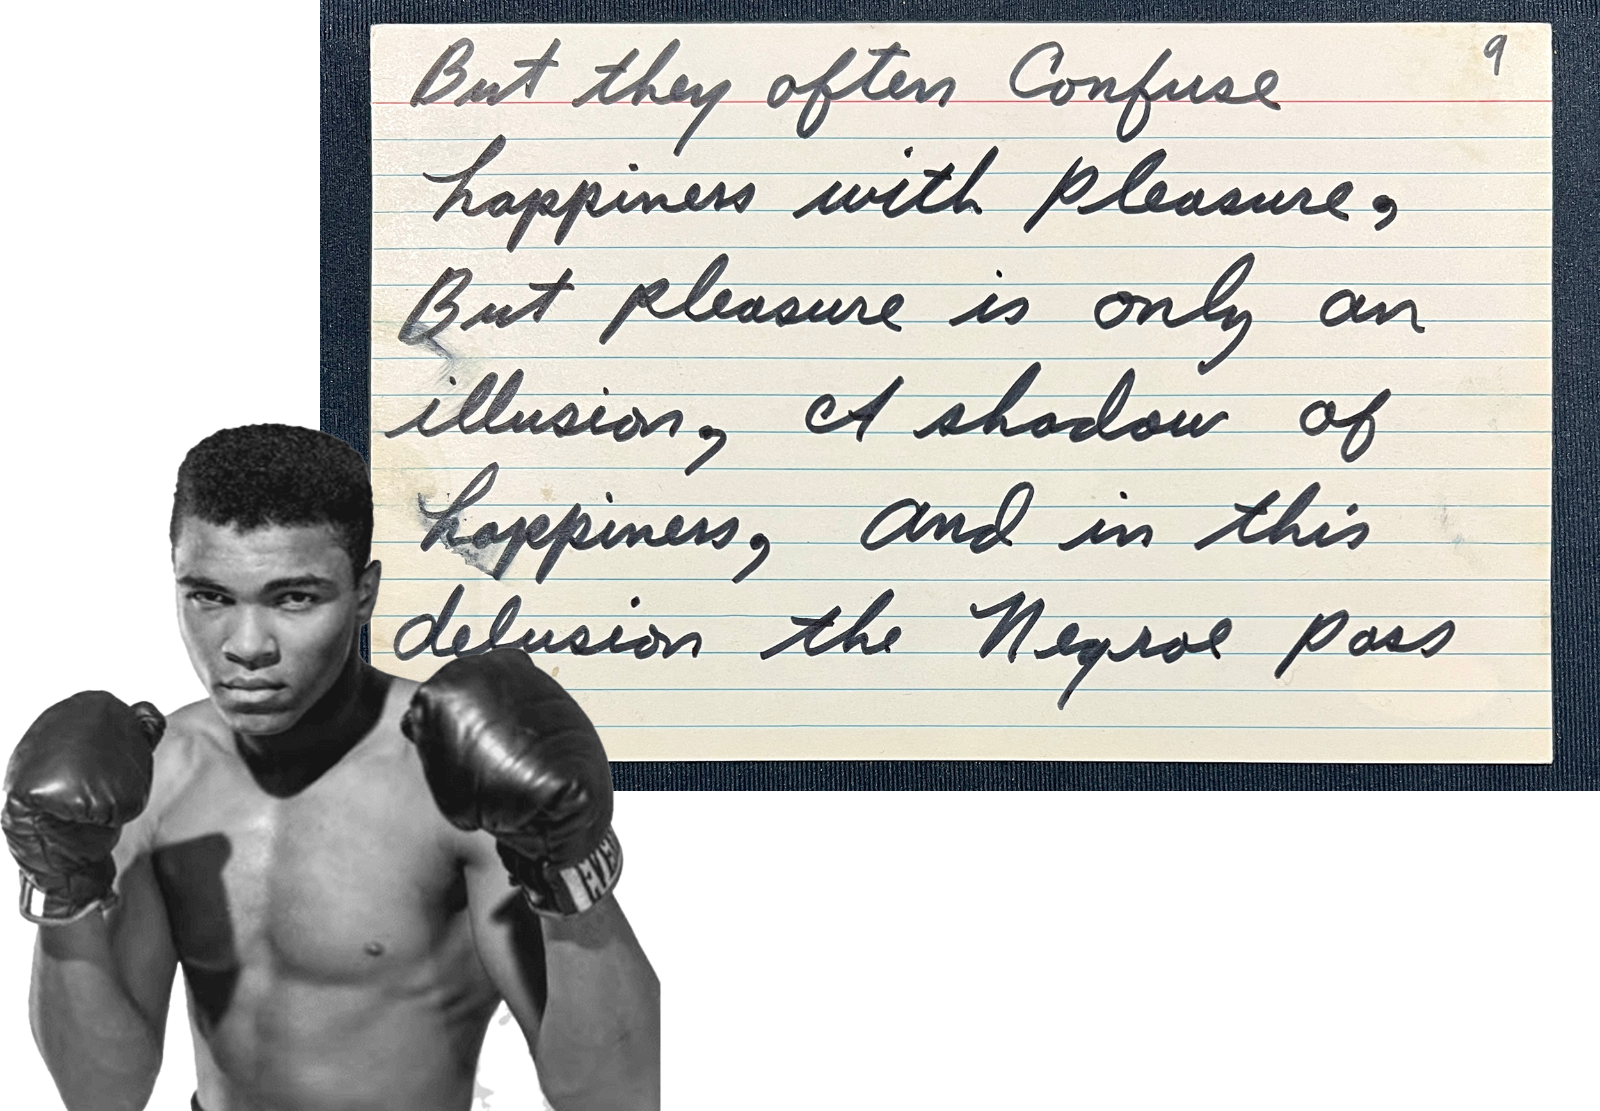 9
But they often Confuse
happiness with pleasure,
But pleasure is only an
illusion, A shadow of
happiness, and in this
delusion the Negroe pass
EVE